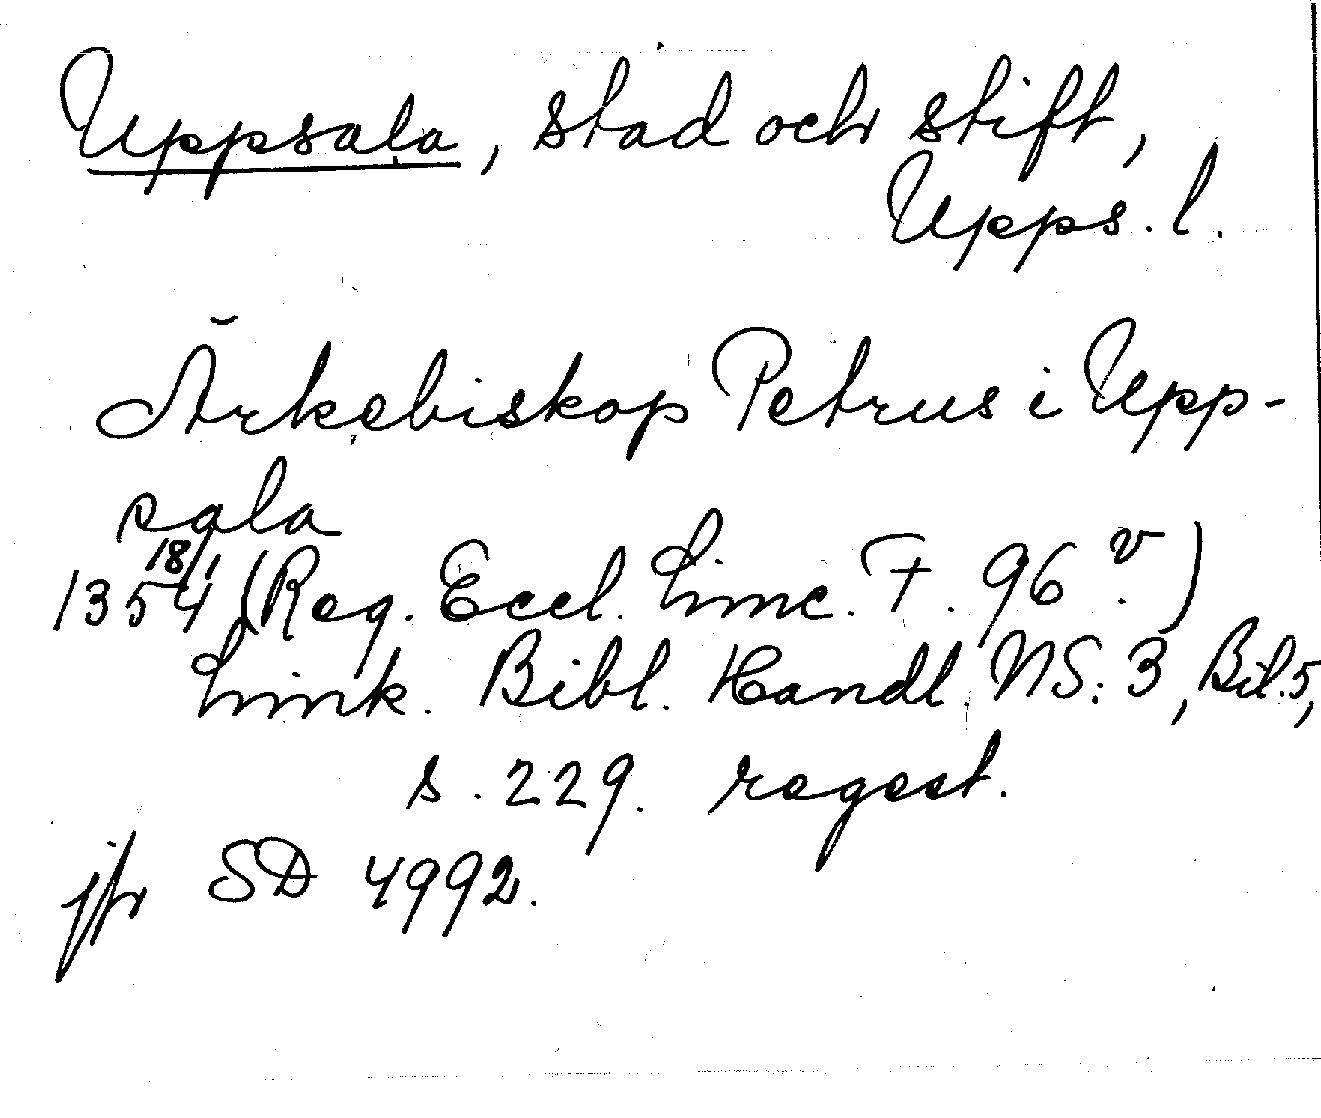 Uppsala, stad och stift,
Upps. l.
Ärkebiskop Petrus i Upp-
sala
1354 18/1 (Reg. Eccl. Linc. F. 96 v.)
Link. Bibl. Handl. NS: 3, Bil. 5,
s. 229. regest.
jfr SD 4992.